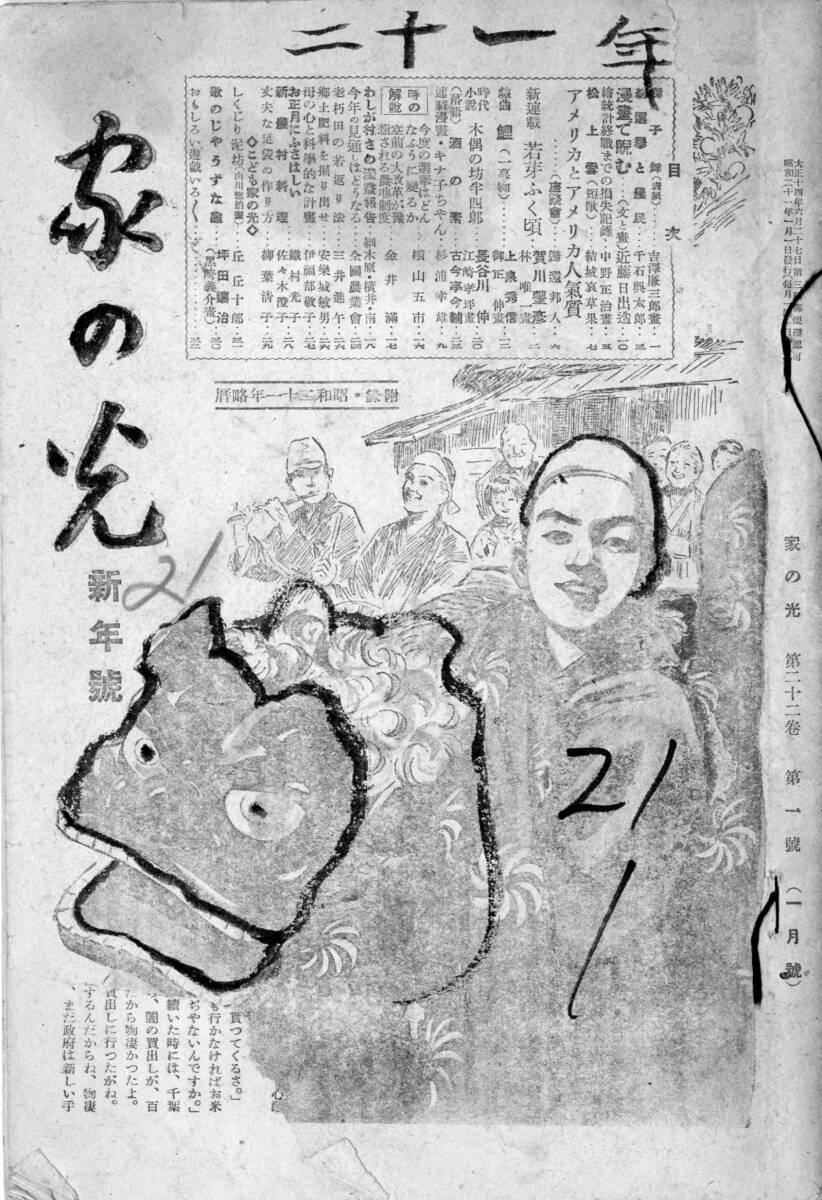 二十一年
家の光
新年號
21
目次
獅子舞(表紙)‥吉澤廉三郎畫‥一
總選擧と農民‥千石興太郎‥三
漫畫で睨む(文と畫)近藤日出造‥一〇
繪統計終戰までの損失記錄・中野正治畫‥五
松上雪(短歌)‥結城哀草果‥七
アメリカとアメリカ人氣質
(座談會)‥歸還邦人‥六
新連載 若芽ふく頃‥賀川豐彦
林唯一畫‥二
戯曲 鯉(一幕物)‥上泉秀信
御正伸畫‥三
時代小說 木偶の坊半四郎‥長谷川伸
江崎孝坪畫‥二〇
(落語)酒の素‥古今亭今輔‥二三
連載漫畫・キナ子ちやん‥杉浦幸雄‥九
時の解說
今度の選擧はどんなふうに變るか‥横山五市‥一六
空前の大改革が豫想される農地制度‥金井滿‥一七
わしが村さの漫畫報告‥細木原・横井・南‥一八
今年の見通しはどうなる‥全國農業會‥二四
老朽田の若返り法‥三井進午‥二六
鄉土肥料を掘り出せ‥安樂城敏男‥二六
母の心と科學的な計畫‥伊福部敬子‥二七
お正月にふさはしい‥鐵村光子
新農村料理‥佐々木澄子‥二八
丈夫な足袋の作り方‥柳葉淸子‥二九
◇こども家の光◇
しくじり泥坊(山川惣治畫)‥丘丘十郎‥三一
敬のじやうずな鷄‥坪田讓治
(黑崎義介畫)‥三〇
おもしろい遊戲いろ〳〵‥三二
附錄。昭和二十一年略曆
大正十四年六月二十七日第三種郵便物認可
昭和二十一年一月一日發行(每月一回一日
家の光 第二十二卷 第一號 (一月號)
21
1
貰つてくるさ。」
も行かなければお米
ぢやないんですか。」
續いた時には、千葉
ら、闇の買出しが、百
だから物凄かつたよ。
買出しに行つたがね。
するんだからね、物凄
、また政府は新しい手